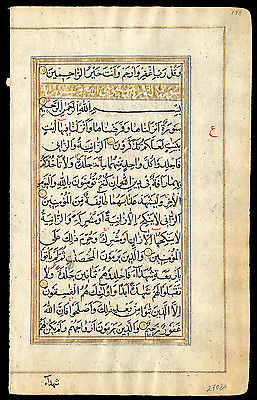 وَقُل رَبِّ اغْفِرْ وَارْحَمْ وَأَنْتَ خَيْرُ الرَّاحِمِينَ
بِسْمِ اللهِ الرَّحْمٰنِ الرَّحِيمِ
سُورَةٌ أَنْزَلْنَاهَا وَفَرَضْنَاهَا وَأَنْزَلْنَا فِيهَا آيَاتٍ
بَيِّنَاتٍ لَعَلَّكُمْ تَذَكَّرُونَ الزَّانِيَةُ وَالزَّانِي
فَاجْلِدُوا كُلَّ وَاحِدٍ مِنْهُمَا مِائَةَ جَلْدَةٍ وَلَا تَأْخُذْكُمْ
بِهِمَا رَأْفَةٌ فِي دِينِ اللهِ إِنْ كُنْتُمْ تُؤْمِنُونَ بِاللهِ وَالْيَوْمِ
الْآخِرِ وَلْيَشْهَدْ عَذَابَهُمَا طَائِفَةٌ مِنَ الْمُؤْمِنِينَ
الزَّانِي لَا يَنْكِحُ إِلَّا زَانِيَةً أَوْ مُشْرِكَةً وَالزَّانِيَةُ
لَا يَنْكِحُهَا إِلَّا زَانٍ أَوْ مُشْرِكٌ وَحُرِّمَ ذٰلِكَ عَلَى
الْمُؤْمِنِينَ وَالَّذِينَ يَرْمُونَ الْمُحْصَنَاتِ ثُمَّ لَمْ يَأْتُوا
بِأَرْبَعَةِ شُهَدَاءَ فَاجْلِدُوهُمْ ثَمَانِينَ جَلْدَةً وَلَا
تَقْبَلُوا لَهُمْ شَهَادَةً أَبَدًا وَأُولٰئِكَ هُمُ الْفَاسِقُونَ
إِلَّا الَّذِينَ تَابُوا مِنْ بَعْدِ ذٰلِكَ وَأَصْلَحُوا فَإِنَّ اللهَ
غَفُورٌ رَحِيمٌ وَالَّذِينَ يَرْمُونَ أَزْوَاجَهُمْ وَلَمْ يَكُنْ لَهُمْ
شهداء
ع